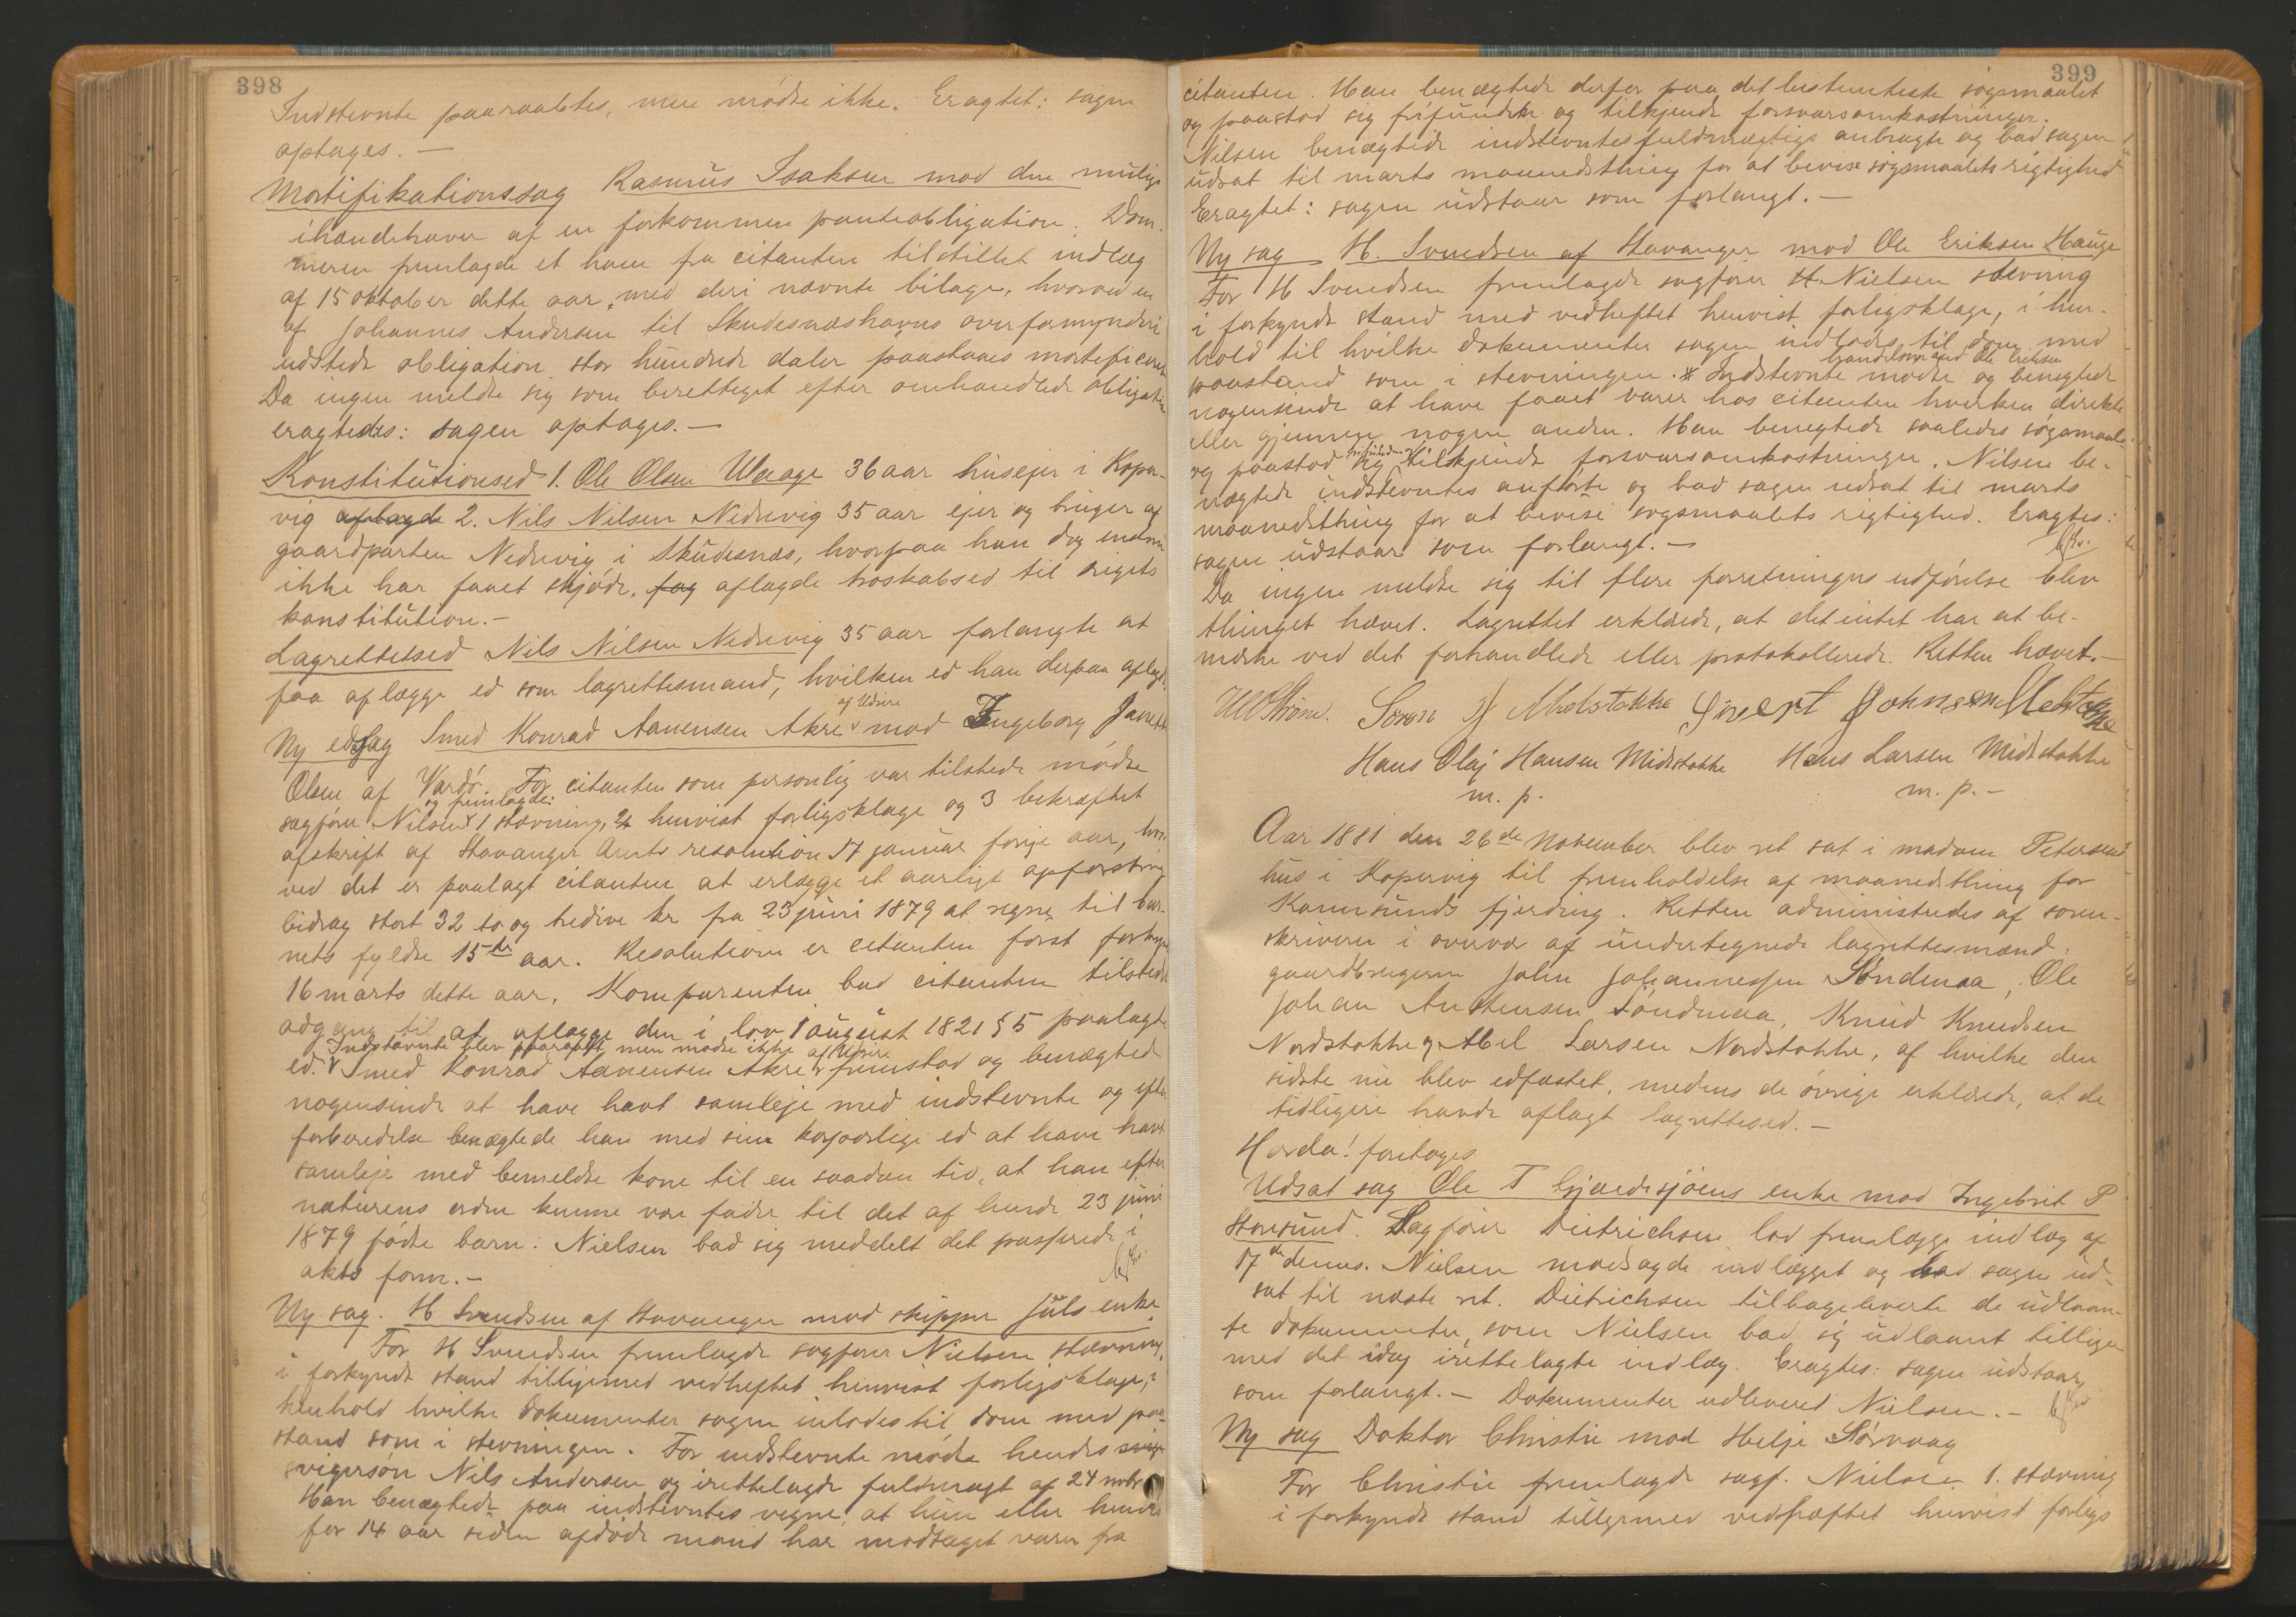 398
Indstevnte paaraabtes, men mødte ikke. Eragtet: sagen
optages. —
Mortifikationssag Rasmus Isaksen mod den mulige
ihændehaver af en forkommen panteobligation. Dom-
meren fremlagde et ham fra citanten tilstillet indlæg
af 15 oktober dette aar, med deri nævnte bilage, hvorved en
af Johannes Andersen til Skudesnæshavns overformynderi
udstedt obligation stor hundrede daler paastaaes mortificeret
Da ingen meldte sig som berettiget efter omhandlede obligation
eragtedes: sagen optages. —
Konstitutionsed 1. Ole Olsen Waage 36 aar husejer i Koper-
vig aflagde 2. Nils Nilsen Nedrevig 35 aar ejer og bruger af
gaardparten Nedrevig i Skudesnæs, hvorpaa han dog endnu
ikke har faaet skjøde, aflagde troskabsed til rigets
konstitution. —
Lagrettesed Nils Nilsen Nedrevig 35 aar forlangte at
faa aflægge ed som lagrettesmand, hvilken ed han derpaa aflagde.
Ny edssag Smed Konrad Aanensen Akre af Udsire mod Ingeborg Janette
Olsen af Vardø. For citanten som personlig var tilstede mødte
sagfører Nilsen og fremlagde: 1 stævning, 2 henvist forligsklage og 3 bekræftet
afskrift af Stavanger Amts resolution 17 januar forrige aar, hvor-
ved det er paalagt citanten at erlægge et aarligt opfostrings
bidrag stort 32 to og tredive kr fra 23 juni 1879 at regne til bar-
nets fyldte 15de aar. Resolutionen er citanten først forkyndt
16 marts dette aar. Komparenten bad citanten tilstedt
adgang til at aflægge den i lov 1 august 1821 § 5 paalagte
ed. Indstævnte blev paaraabt, men mødte ikke Smed Konrad Aanensen Akre af Udsire fremstod og benægtede
nogensinde at have havt samleje med indstevnte og efter
forberedelse benægtede han med sin korporlige ed at have havt
samleje med bemeldte kone til en saadan tid, at han efter
naturens orden kunne være fader til det af hende 23 juni
1879 fødte barn. Nielsen bad sig meddelt det passerede i
akts form. —
Ny sag. H Svendsen af Stavanger mod skipper Juls enke.
For H Svendsen fremlagde sagfører Nielsen stævning,
i forkyndt stand tilligemed vedheftet henvist forligsklage, i
henhold hvilke dokumenter sagen inlodes til dom med paa-
stand som i stevningen. For indstevnte mødte hendes
svigersøn Nils Andersen og irettelagde fuldmagt af 24 novbr
Han benægtede paa indstevntes vegne, at hun eller hendes
for 14 aar siden afdøde mand har modtaget varer fra
399
citanten. Han benægtede derfor paa det bestemteste søgsmaalet
og paastod sig frifunden og tilkjendt forsvarsomkostninger.
Nilsen benægtede indstevntes fuldmægtigs anbragte og bad sagen
udsat til marts maanedsthing for at bevise søgsmaalets rigtighed
Eragtet: sagen udstaar som forlangt. —
Ny sag H. Svendsen af Stavanger mod Ole Eriksen Hauge
For H Svendsen fremlagde sagfører H. Nielsen stevning
i forkyndt stand med vedheftet henvist forligsklage, i hen-
hold til hvilke dokumenter sagen indlodes til dom med
paastand som i stevningen. Indstevnte handelsmand Ole Eriksen mødte og benegtede
nogensinde at have faaet varer hos citanten hverken direkte
eller gjennem nogen anden. Han benegtede saaledes søgsmaalet
og paastod sig frifunden tilkjendt forsvarsomkostninger. Nilsen be-
nægtede indstevntes anførte og bad sagen udsat til marts
maanedsthing for at bevise søgsmaalets rigtighed. Eragtes:
sagen udstaar som forlangt. —
Da ingen meldte sig til flere forretningers udførelse blev
thinget hævet. Lagrettet erklærede, at det intet har at be-
mærke ved det forhandlede eller protokollerede. Retten hævet. —
Soren J Midstokke Sivert Johnsen
Hans Olaj Hansen Midtstokke Hans Larsen Midtstokke
m. p. m. p. —
Aar 1881 den 26de November blev ret sat i madam Petersens
hus i Kopervig til fremholdelse af maanedsthing for
Karmsunds fjerding. Retten administredes af soren-
skriveren i overvær af undertegnede lagrettesmænd.
gaardbrugerne John Johannessen Søndenaa, Ole
Johan Anstensen Søndenaa, Knud Knudsen
Nordstokke og Abel Larsen Nordstokke, af hvilke den
sidste nu blev edfæstet, medens de øvrige erklærede, at de
tidligere havde aflagt lagrettesed. —
Horda! foretoges
Udsat sag Ole T Gjærdesjøens enke mod Ingebret P
Storesund. Sagfører Dietrichson lod fremlægge indlæg af
17de dennes. Nielsen modsagde indlægget og bad sagen ud-
sat til næste ret. Dietrichsen tilbageleverte de udlaan-
te dokumenter, som Nielsen bad sig udlaant tillige
med det idag irettelagte indlæg. Eragtes: sagen udstaar
som forlangt. — Dokumenter udleveret Nielsen. —
Ny sag Doktor Christie mod Helje Sørvaag
For Christie fremlagde sagf. Nielsen 1. stævning
i forkyndt stand tilligemed vedhæftet henvist forligs